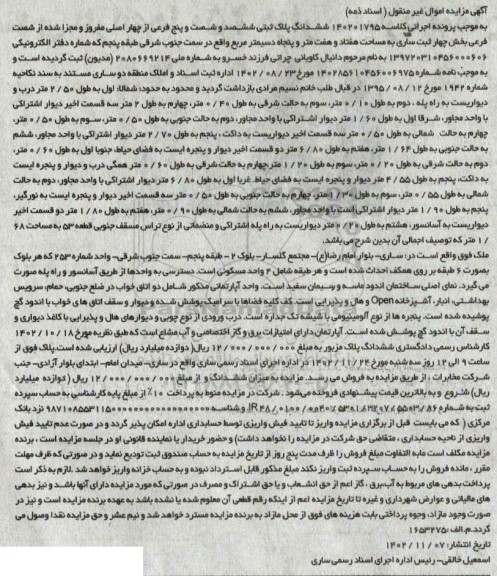 آگهی مزایده اموال غیر منقول ( اسناد ذمه)
به موجب پرونده اجرائی کلاسه ۱۴۰۲۰۱۷۹۵ ششدانگ پلاک ثبتی ششصد و شصت و پنج فرعی از چهار اصلی مفروز و مجزا شده از شصت
فرعی بخش چهار ثبت ساری به مساحت هفتاد و هفت متر و پنجاه دسیمتر مربع واقع در سمت جنوب شرقی طبقه پنجم که شماره دفتر الکترونیکی
به نام مرحوم دانیال کاویانی چراتی فرزند خسرو به شماره ملی ۲۰۸۰۶۶۹۲۱۴ (مدیون) ثبت گردیده است و
به موجب نامه شماره ۱۴۰۲۸۵۶۱۰۴۵۶۰۰۶۹۷۵ مورخ ۱۴۰۲/۰۸/۲۳ اداره ثبت اسناد و املاک منطقه دو ساری مستند به سند نکاحیه
شماره ۱۹۴۲ مورخ ۱۳۹۵/۰۸/۱۲ در قبال طلب خانم نسیم مرادی بازداشت گردید و محدود به حدود: شمالا: اول به طول ۲/۵۰ متر درب و
دیواریست به راه پله ، دوم به طول ۰/۱۰ متر، سوم به حالت شرقی به طول ۰/۴۰ متر، چهارم به طول ۲ متر سه قسمت اخیر دیوار اشتراکی
با واحد مجاور، شرقا اول به طول ۱/۶۰ متر دیوار اشتراکی با واحد مجاور، دوم به حالت جنوبی به طول ۰/۵۰ متر، سوم به طول ۰/۵۰ متر،
چهارم به حالت شمالی به طول ۰/۵۰ متر سه قسمت اخیر دیواریست به داکت ، پنجم به طول ۲/۷۰ متر دیوار اشتراکی با واحد مجاور، ششم
به حالت جنوبی به طول ۱/۶۴ متر، هفتم به طول ۶/۸۰ متر دو قسمت اخیر دیوار و پنجره ایست به فضای حیاط، جنوبا اول به طول ۰/۶۰ متر،
دوم به حالت شرقی به طول ۰/۲۰ متر، سوم به طول ۱/۲۰ متر،چهارم به حالت شرقی به طول ۰/۶۰ متر همگی درب و دیوار و پنجره ایست
به داکت، پنجم به طول ۴/۵۵ متر دیوار و پنجره ایست به فضای حیاط. غربا اول به طول ۶/۸۰ متر دیوار اشتراکی با واحد مجاور، دوم به حالت
شمالی به طول ۰/۵۵ متر، سوم به طول ۱/۳۰ متر، چهارم به حالت جنوبی به طول ۰/۵۰ متر سه قسمت اخیر دیوار و پنجره ایست به نورگیر،
پنجم به طول ۱/۹۰ متر دیوار اشتراکی است با واحد مجاور، ششم به حالت شمالی به طول ۰/۹۰ متر، هفتم به طول ۱/۸۰ متر دو قسمت اخیر
دیواریست به آسانسور، هشتم به طول ۰/۲۰ متر دیواریست به راه پله اشتراکی و منضمانی از نوع تراس مسقف جنوبی قطعه ۵۳ به مساحت ۶۸
/۱ متر که توصیف اجمالی آن بدین شرح می باشد.
ملک فوق واقع است در : ساری- بلوار امام رضا(ع)- مجتمع گلسار- بلوک ۲ - طبقه پنجم- سمت جنوب شرقی- واحد شماره ۲۵۳ که هر بلوک
بصورت ۶ طبقه بر روی همکف احداث شده است و هر طبقه شامل ۴ واحد مسکونی است. دسترسی به واحدها از طریق آسانسور و راه پله صورت
می گیرد. نمای اصلی ساختمان اندود ماسه و سیمان سفید است. واحد آپارتمانی مذکور شامل دو اتاق خواب در ضلع جنوبی، حمام، سرویس
بهداشتی، انبار، آشپزخانه Open و هال و پذیرایی است. کف کلیه فضاها با سرامیک پوشش شده و دیوار و سقف اتاق های خواب با اندود گچ
پوشیده شده است. پنجره ها از نوع آلومینیومی با شیشه تک جداره است. درب ورودی از نوع چوبی و دیوارهای هال و پذیرایی با کاغذ دیواری و
سقف آن با اندود گچ پوشش شده است. آپارتمان دارای امتیازات برق و گاز اختصاصی و آب مشاع است که طبق نظریه مورخ ۱۴۰۲/۱۰/۱۸
کارشناس رسمی دادگستری ششدانگ پلاک مزبور به مبلغ ۱۲/۰۰۰/۰۰۰/۰۰۰ ریال( دوازده میلیارد ریال) ارزیابی شده است.پلاک فوق از
ساعت ۹ الی ۱۲ روز سه شنبه مورخ ۱۴۰۲/۱۱/۲۴ در اداره اجرای اسناد رسمی ساری واقع در ساری- میدان امام- ابتدای بلوار آزادی- جنب
شرکت مخابرات ، از طریق مزایده به فروش می رسد. مزایده به میزان ششدانگ و از مبلغ ۱۲/۰۰۰/۰۰۰/۰۰۰ ریال ( دوازده میلیارد
ریال) شروع و به بالاترین قیمت پیشنهادی فروخته می‌شود. شرکت در مزایده منوط به پرداخت ۱۰٪ از مبلغ پایه کارشناسی به حساب سپرده
ثبت به شماره و شناسه نزد بانک
مرکزی ( که می بایست قبل از برگزاری مزایده واریز تا تایید فیش واریزی توسط حسابداری اداره امکان پذیر گردد و در صورت عدم تایید فیش
واریزی از ناحیه حسابداری ، متقاضی حق شرکت در مزایده را نخواهد داشت) و حضور خریدار یا نماینده قانونی او در جلسه مزایده است ، برنده
مزایده مکلف است مابه التفاوت مبلغ فروش را ظرف مدت پنج روز از تاریخ مزایده به حساب صندوق ثبت تودیع نماید و در صورتی که ظرف مهلت
مقرر ، مانده فروش را به حساب سپرده ثبت واریز نکند مبلغ مذکور قابل استرداد نبوده و به حساب خزانه واریز خواهد شد .لازم به ذکر است
پرداخت بدهی های مربوط به آب،برق ، گاز اعم از حق انشعاب و یا حق اشتراک و مصرف در صورتی که مورد مزایده دارای آنها باشد و نیز بدهی
های مالیاتی و عوارض شهرداری و غیره تا تاریخ مزایده اعم از اینکه رقم قطعی آن معلوم شده یا نشده باشد به عهده برنده مزایده است و نیز در
صورت وجود مازاد، وجوه پرداختی بابت هزینه های فوق از محل مازاد به برنده مزایده مسترد خواهد شد و نیم عشر و حق مزایده نقدا وصول می
گردد.م.الف :۱۶۵۳۲۷۵
تاریخ انتشار: ۱۴۰۲/۱۱/۰۷
اسمعیل خالقی- رئیس اداره اجرای اسناد رسمی ساری